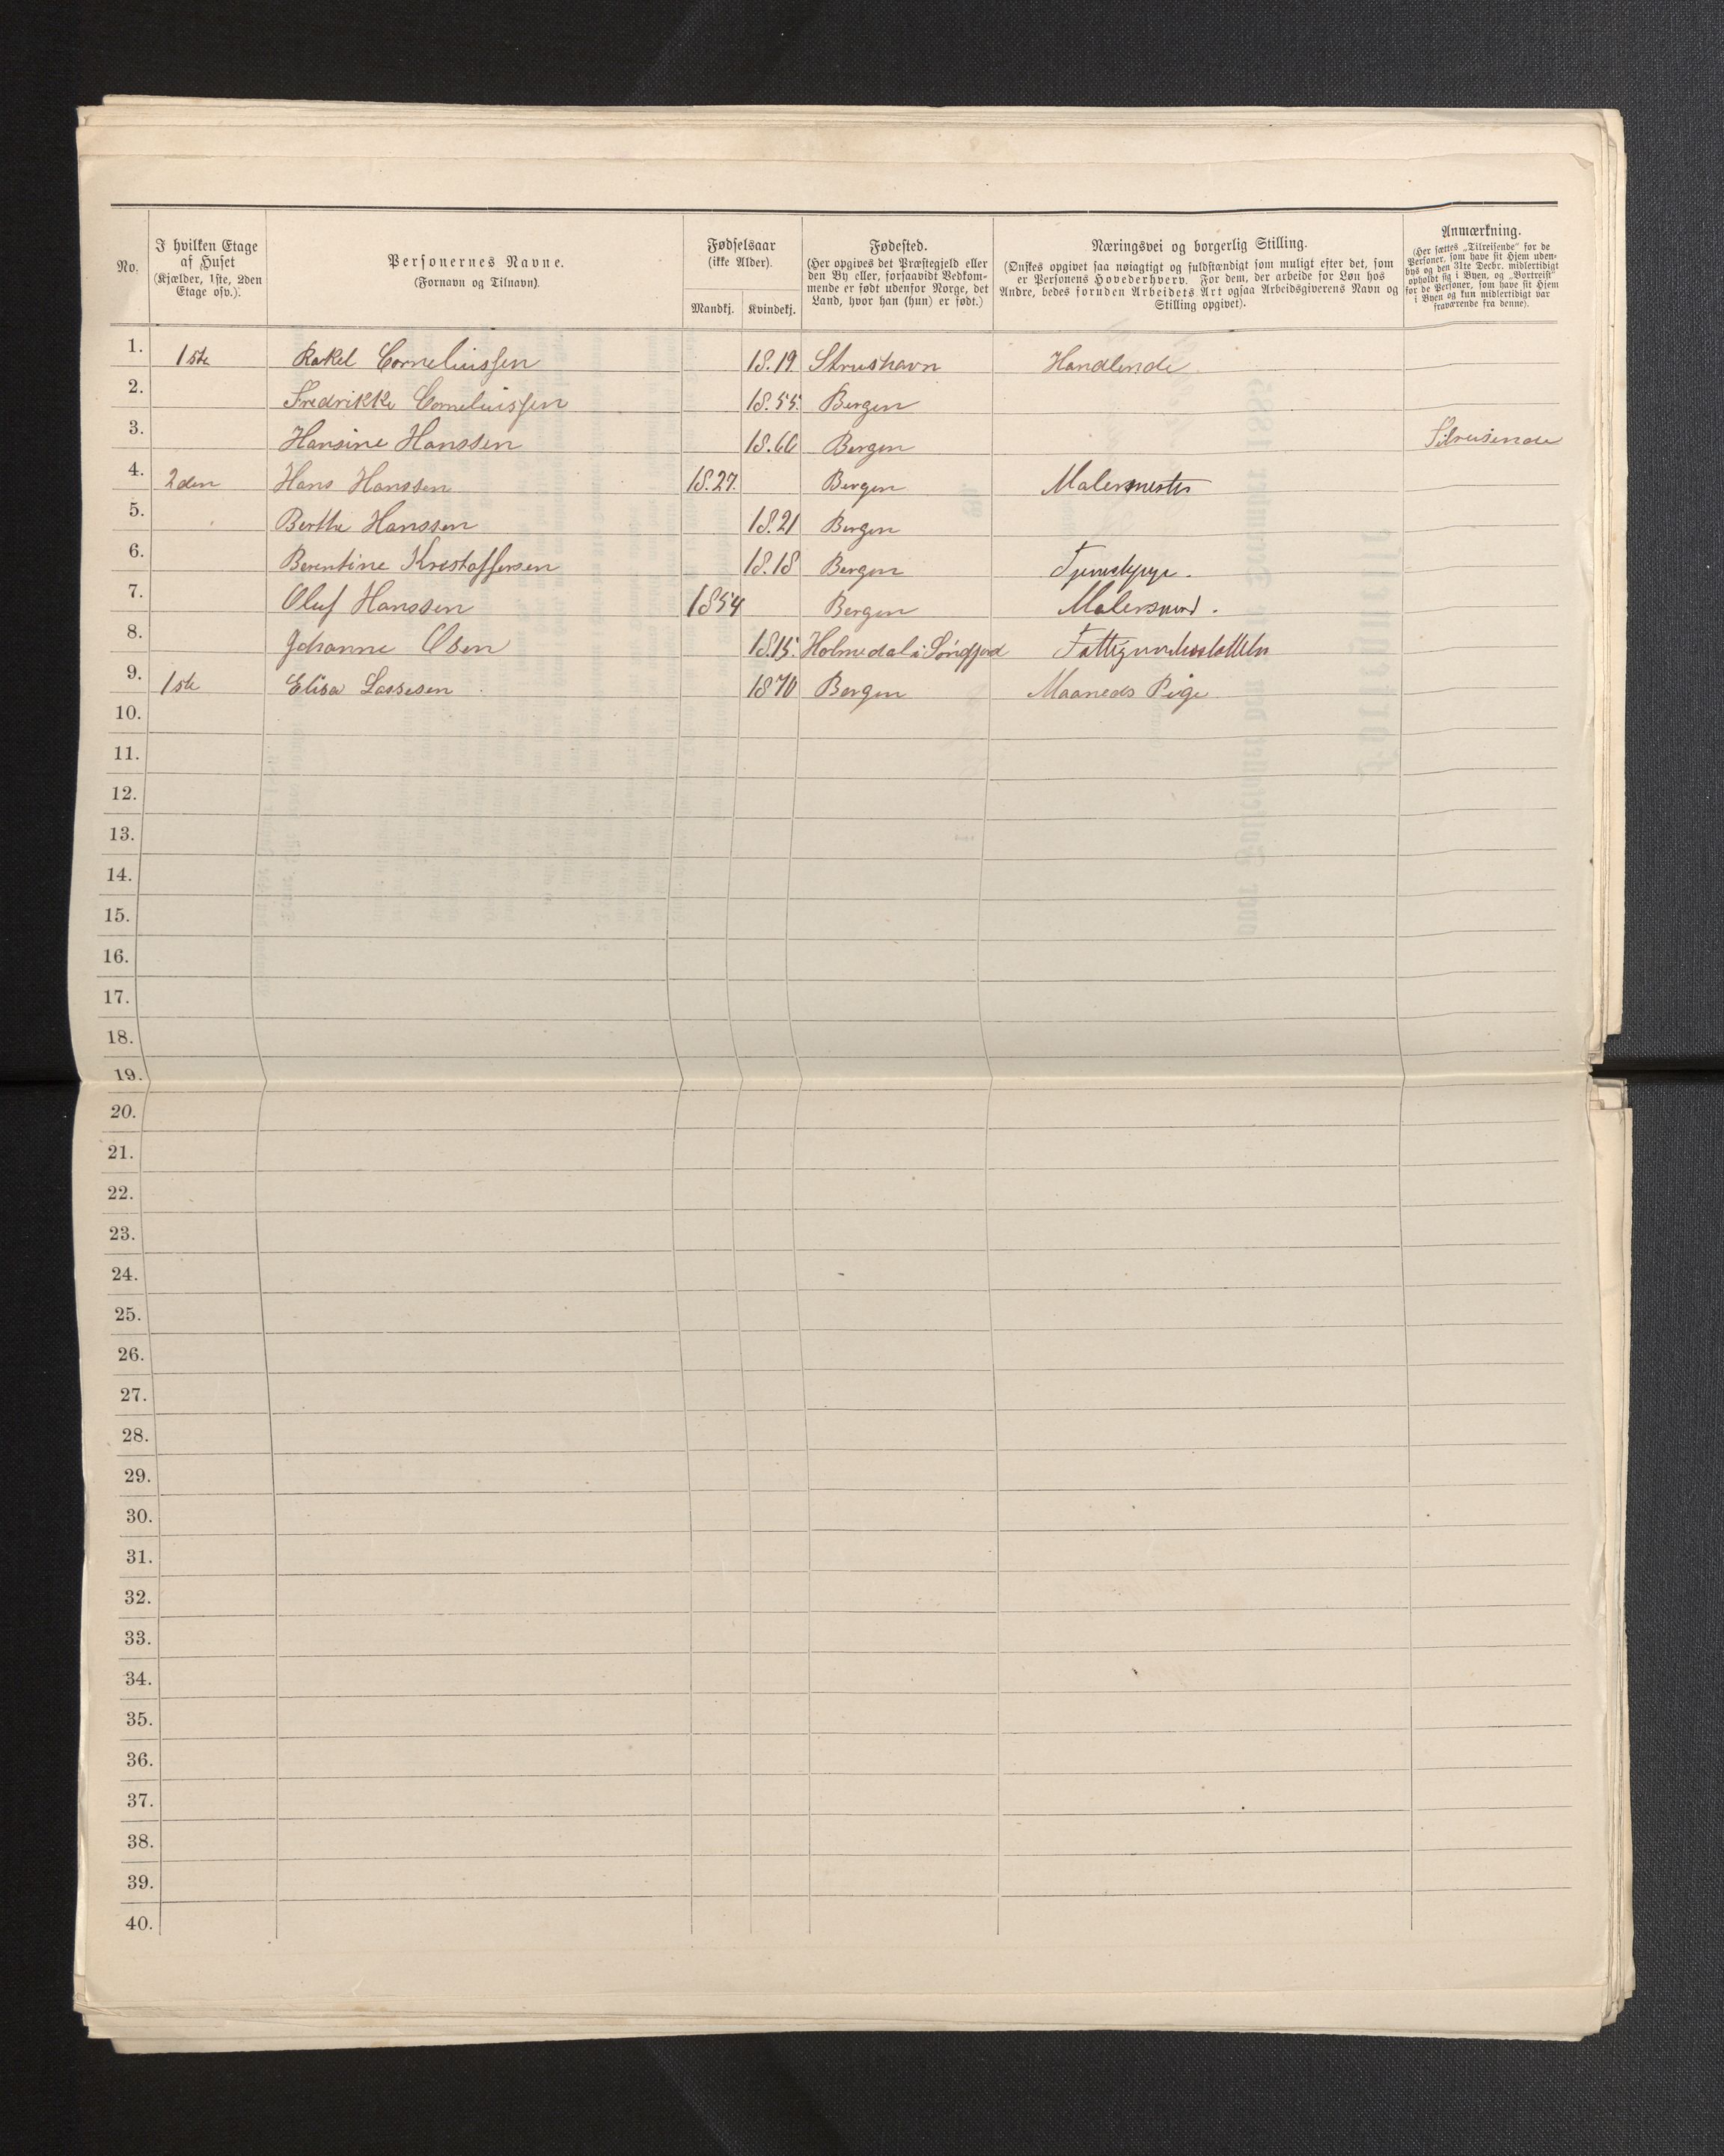 No.	I hvilken Etage af Huset (Kjælder, 1ste, 2den Etage osv.).	Personernes Navne. (Fornavn og Tilnavn).	Fødselsaar (ikke Alder). Mandkj. Kvindekj.	Fødested. (Her opgives det Præstegjeld eller den By eller, forsaavidt Vedkommende er født udenfor Norge, det Land, hvor han (hun) er født.)	Næringsvei og borgerlig Stilling. (Ønskes opgivet saa nøiagtigt og fuldstændigt som muligt efter det, som er Personens Hovederhverv. For dem, der arbeide for Løn hos Andre, bedes foruden Arbeidets Art ogsaa Arbeidsgiverens Navn og Stilling opgivet).	Anmærkning. (Her sættes „Tilreisende“ for de Personer, som have sit Hjem udenbys og den 31te Decbr. midlertidigt opholdt sig i Byen, og „Bortreist“ for de Personer, som have sit Hjem i Byen og kun midlertidigt var fraværende fra denne).
1. 1ste Rakel Corneliussen 18.19 Strushavn Handlende
2. Fredrikke Corneliussen 18.55. Bergen
3. Hansine Hanssen 18.66 Bergen Tilreisende
4. 2den Hans Hanssen 18.27. Bergen Malermester
5. Berthe Hanssen 18.21 Bergen
6. Berentine Krestoffersen 18.18 Bergen
7. Oluf Hanssen 1854 Bergen Malersvend.
8. Johanne Olsen 18.15. Holmedal i Søndfjord
9. 1ste Elisa Lassesen 1870 Bergen Maaneds Pige
10.
11.
12.
13.
14.
15.
16.
17.
18.
19.
20.
21.
22.
23.
24.
25.
26.
27.
28.
29.
30.
31.
32.
33.
34.
35.
36.
37.
38.
39.
40.